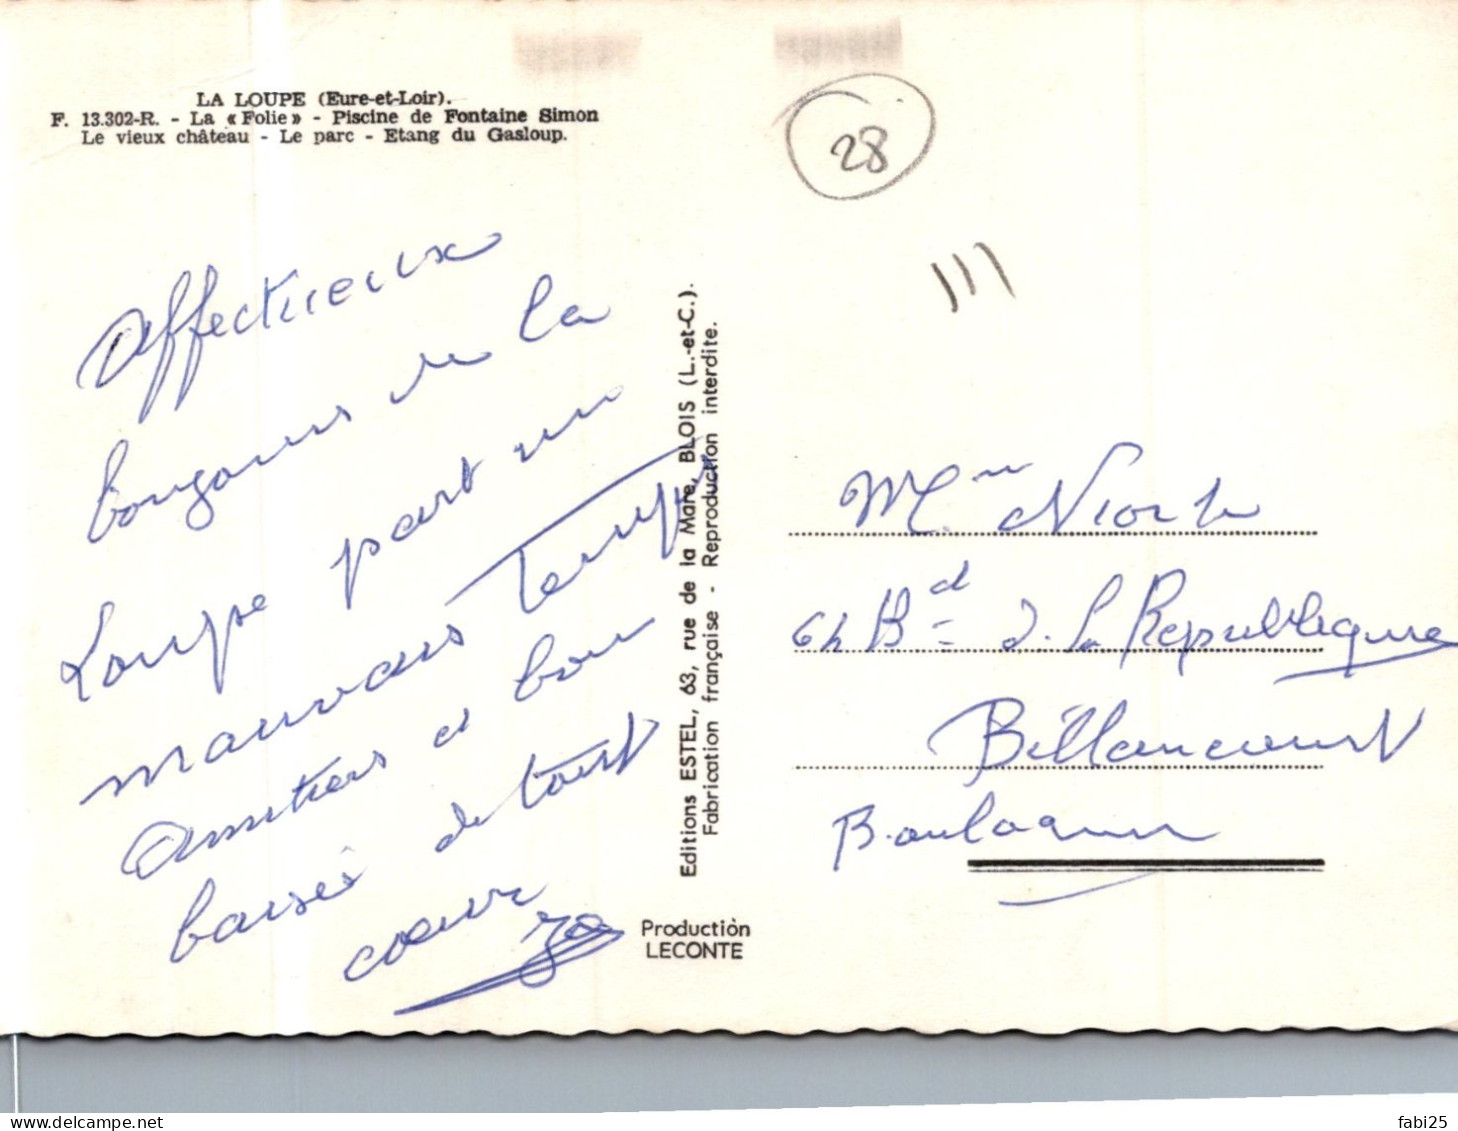 LA LOUPE (Eure-et-Loir).
F. 13.302-R. - La « Folie » - Piscine de Fontaine Simon
Le vieux château - Le parc - Etang du Gasloup.
28
Affectueux
bonjours de la
Loupe part un
mauvais Temps
Amities et bon
baiser de tout
coeur
Editions ESTEL, 63, rue de la Mare, BLOIS (L.-et-C.).
Fabrication française - Reproduction interdite.
Production
LECONTE
Mme
Bd d. la Republique
Billancourt
Boulogne
fabi25